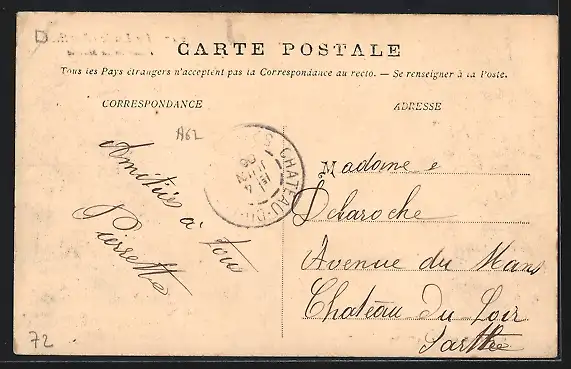 CARTE POSTALE
Tous les Pays étrangers n'acceptent pas la Correspondance au recto. — Se renseigner à la Poste.
CORRESPONDANCE
ADRESSE
A62
CHATEAU-DU
Amitiés à tous
Pierrette
Madame
Delaroche
Avenue du Mans
Château du Loir
Sarthe
72